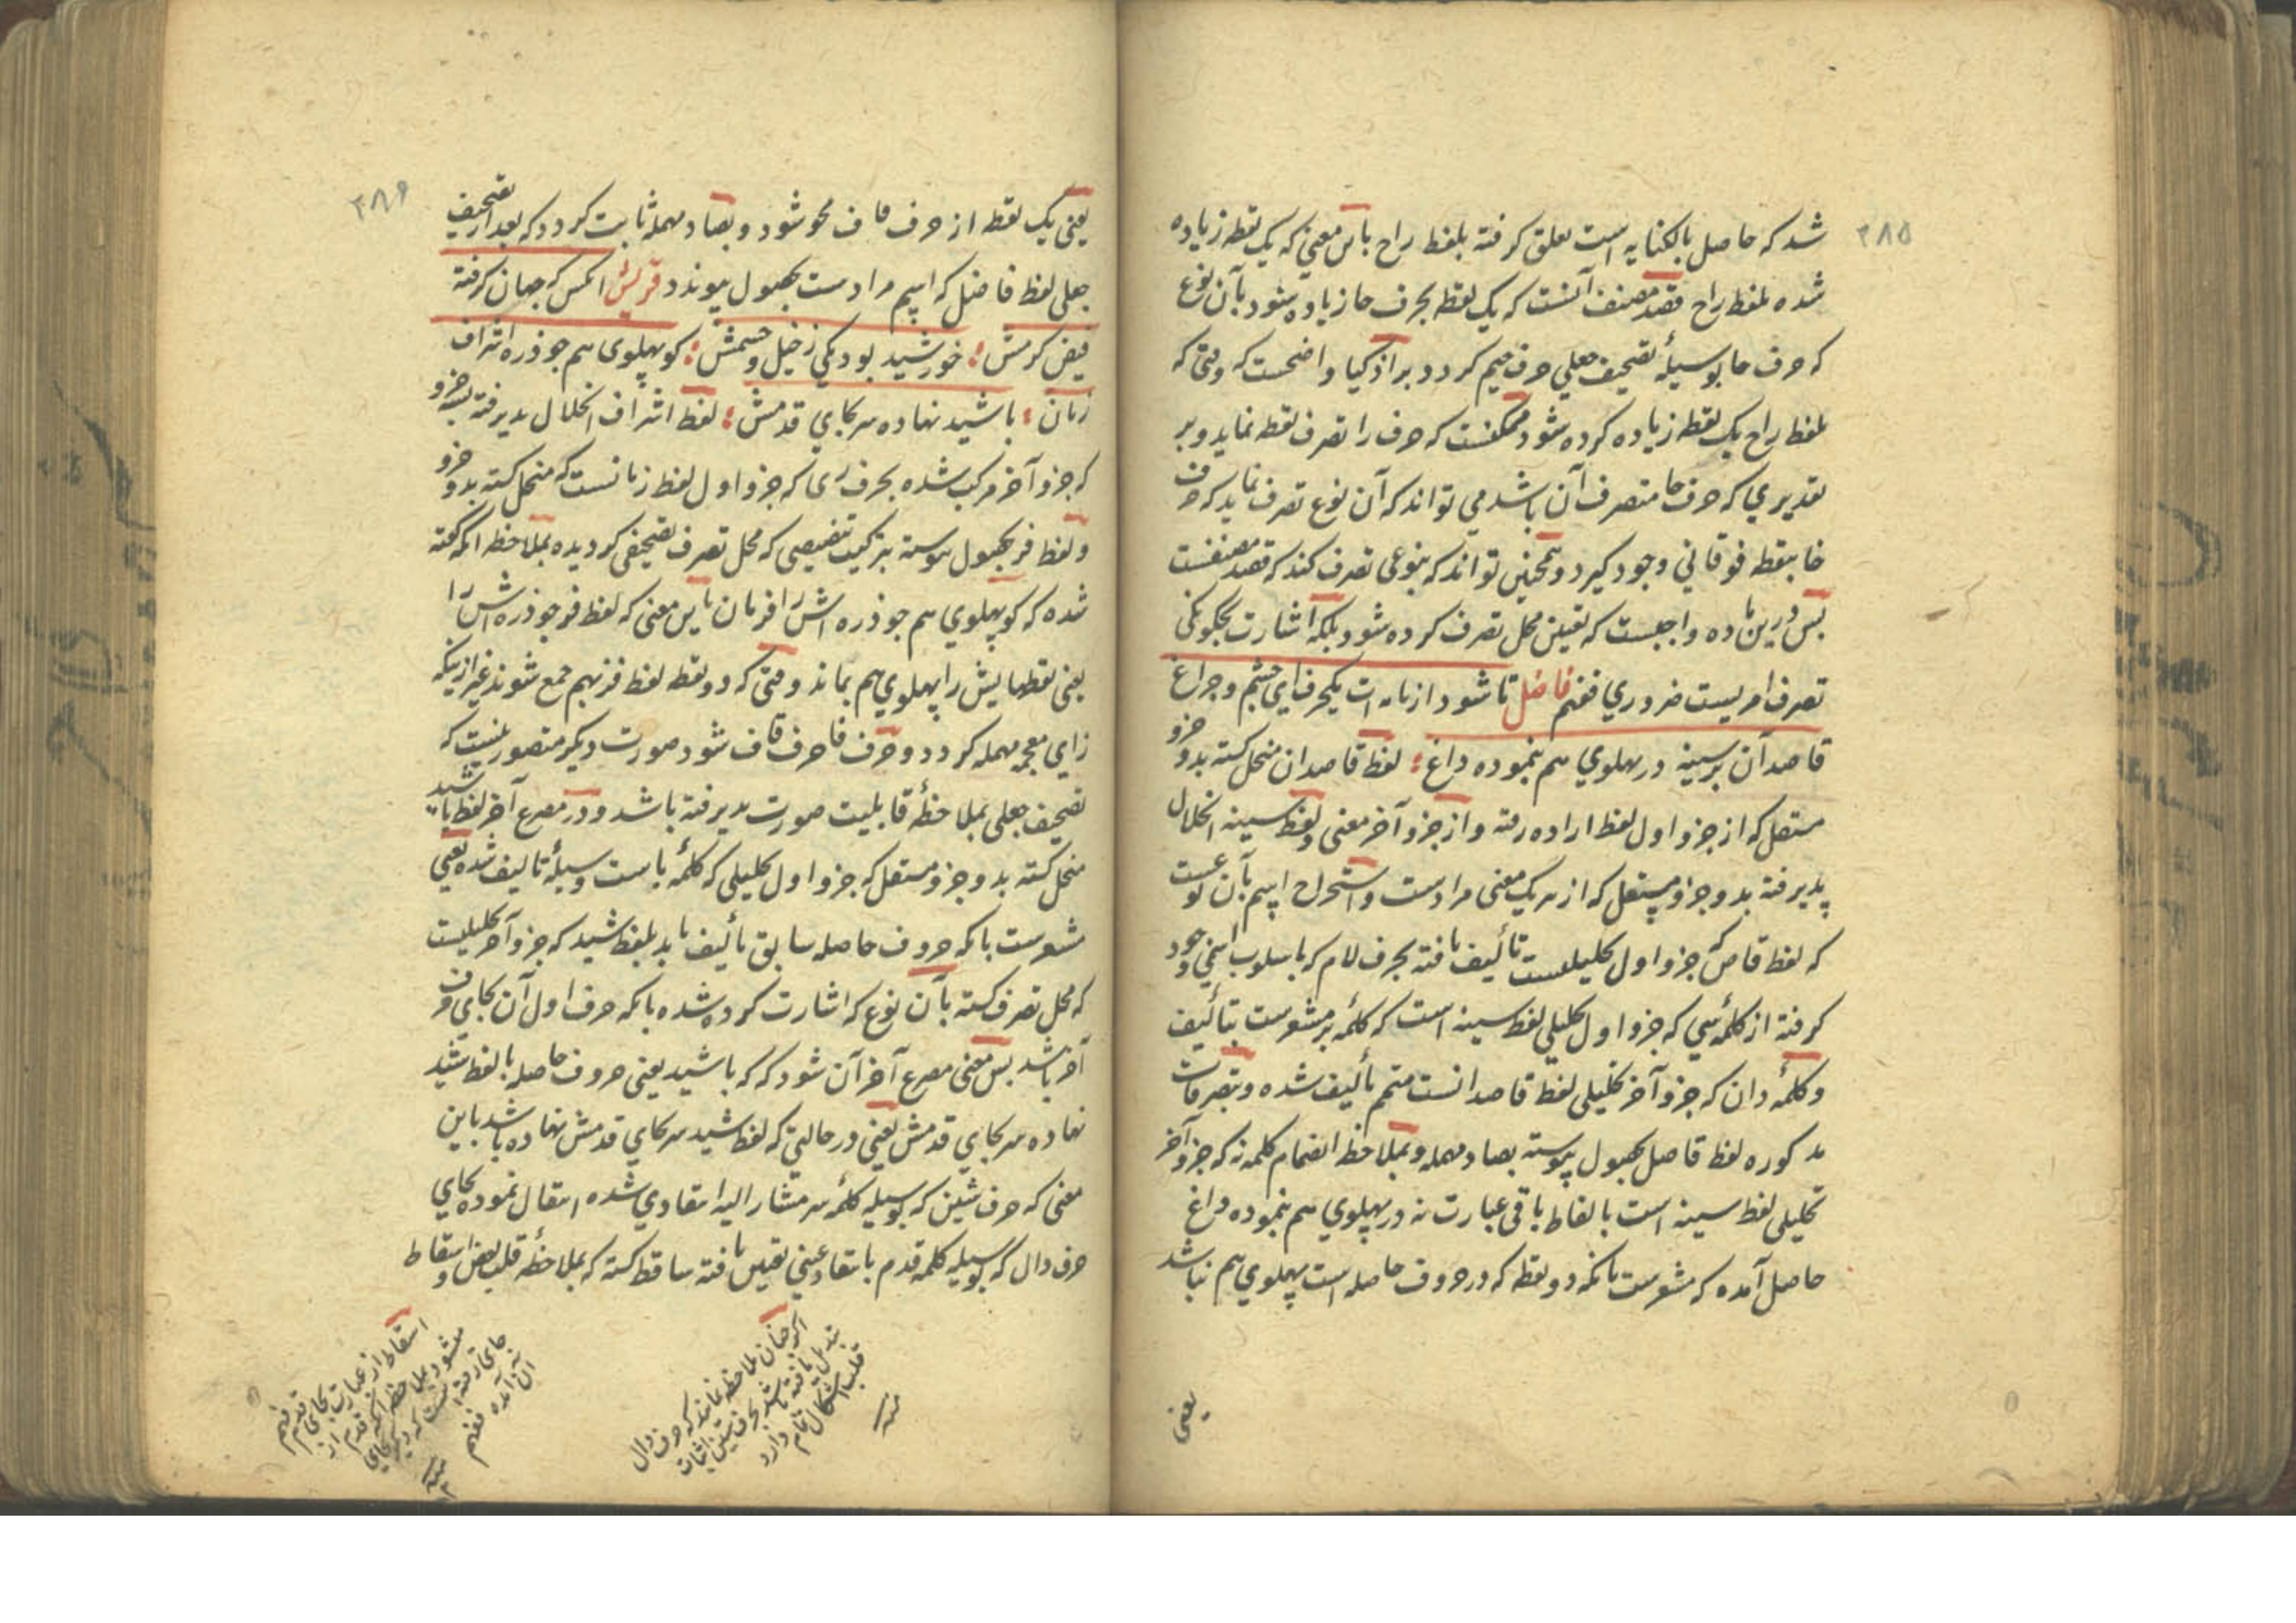 ۲۸۵
شد که حاصل بالکنایه است تعلق گرفته بلفظ راح باین معنی که یک نقطه زیاده
شده بلفظ راح قصد مصنف آنست که یک نقطه بحرف حا زیاده شود بآن نوع
که حرف حا بوسیلهٔ تصحیف جعلی حرف جیم گردد براذکیا واضحست که وقتی که
بلفظ راح یک نقطه زیاده کرده شود ممکنست که حرف را تصرف نقطه نماید و بر
تقدیری که حرف حا متصرف آن باشد می تواند که آن نوع تصرف نماید که حرف
خا بنقطه فوقانی وجود گیرد و همچنین تواند که بنوعی تصرف کند که قصد مصنفست
پس درین ماده واجبست که تعیین محل تصرف کرده شود بلکه اشارت بچگونگی
تصرف امریست ضروری فافهم فاضل تا شود از یک حرف ای چشم و چراغ
قاصد آن بر سینه در پهلوی هم بنموده داغ لفظ قاصدان منحل گشته بدو جزو
مستقل که از جزو اول لفظ اراده رفته و از جزو آخر معنی و لفظ سینه انحلال
پذیرفته بدو جزو مستقل که از هر یک معنی مرادست و استخراج اسم بآن نوعست
که لفظ قاص که جزو اول تحلیلیست تألیف یافته بحرف لام که باسلوب اسمی وجود
گرفته از کلمهٔ سی که جزو اول تحلیلی لفظ سینه است که کلمهٔ بر مشعرست بتألیف
و کلمهٔ دان که جزو آخر تحلیلی لفظ قاصدانست متمم تألیف شده و بتصرفات
مذکوره لفظ قاصل بحصول پیوسته بصاد مهمله و بملاحظه انضمام کلمه نه که جزو آخر
تحلیلی لفظ سینه است بالفاظ باقی عبارت نه در پهلوی هم بنموده داغ
حاصل آمده که مشعرست بآنکه دو نقطه که در حروف حاصله است پهلوی هم نباشد
یعنی
۲۸۶
یعنی یک نقطه از حرف قاف محو شود و بصاد مهمله ثابت گردد که بعد از تصحیف
جعلی لفظ فاضل که اسم مرادست بحصول پیوندد قریش آنکس که جهان گرفته
فیض کرمش خورشید بود یکی ز خیل و حشمش گو پهلوی هم جو ذره اشراف
زمان باشید نهاده سر بجای قدمش لفظ اشراف انحلال پذیرفته بسه جزو
که جزو آخر مرکب شده بحرف زی که جزو اول لفظ زمانست که منحل گشته بدو جزو
و لفظ فز بحصول پیوسته بترکیب تنصیصی که محل تصرف تصحیفی گردیده بملاحظه آنکه گفته
شده که گو پهلوی هم جو ذره اش را فزمان باین معنی که لفظ فز جو ذره اش را
یعنی نقطهایش را پهلوی هم بماند وقتی که دو نقطه لفظ فز بهم جمع شوند غیر از اینکه
زای معجمه مهمله گردد و حرف فا حرف قاف شود صورت دیگر متصور نیست که
تصحیف جعلی بملاحظهٔ قابلیت صورت پذیرفته باشد و در مصرع آخر لفظ باشید
منحل گشته بدو جزو مستقل که جزو اول تحلیلی که کلمهٔ باست وسیلهٔ تألیف شده یعنی
مشعرست بآنکه حروف حاصله سابق تألیف یابد بلفظ شید که جزو آخر تحلیلیست
که محل تصرف گشته بآن نوع که اشارت کرده شده بآنکه حرف اول آن بجای حرف
آخر باشد پس معنی مصرع آخر آن شود که که باشید یعنی حروف حاصله با لفظ شید
نهاده سر بجای قدمش یعنی در حالتی که لفظ شید سر بجای قدمش نهاده باشد باین
معنی که حرف شین که بوسیله کلمهٔ سر مشار الیه انتقادی شده انتقال نموده بجای
حرف دال که بوسیله کلمه قدم بانتقاد عینی تعیین یافته ساقط گشته که بملاحظهٔ قلب بعض و اسقاط
اگر چنان ملاحظه نمایند که حرف دال
تبدیل یافته باشد بحرف شین اثبات
قلب اشکال تمام دارد
منه
اسقاط از عبارت بجای قدم فهم
میشود بملاحظه آنکه قدم از
جای رفته است که دیگر بجای
آن آمده فافهم
منه